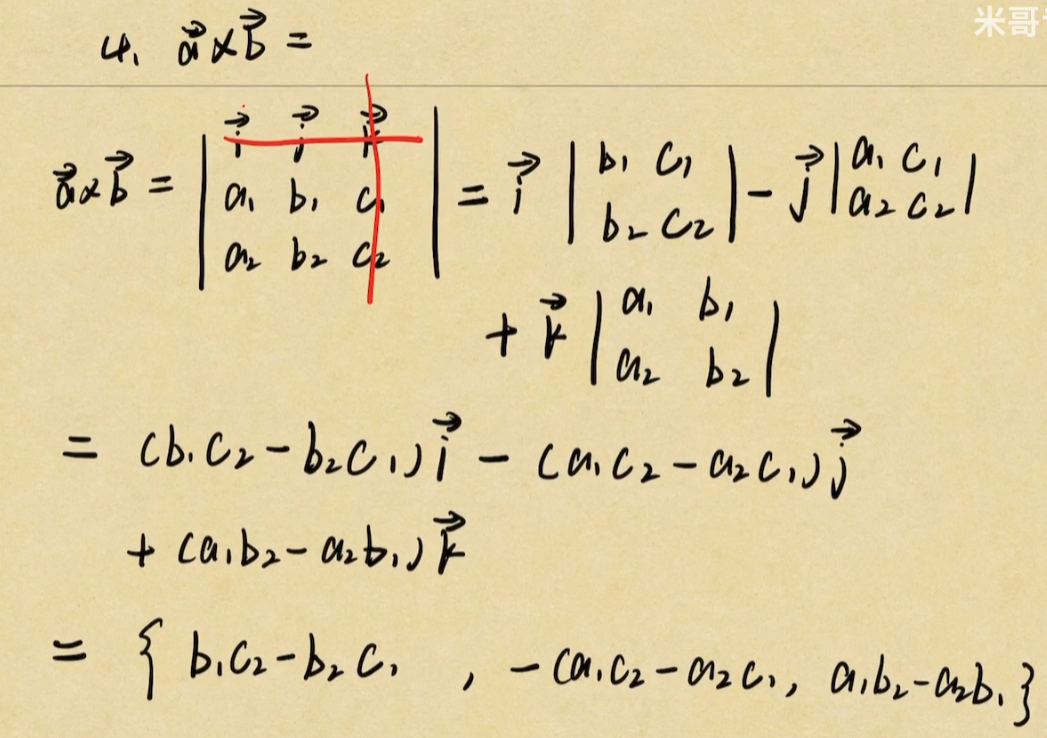 米哥
4. \vec{a}×\vec{b} =
\vec{a}×\vec{b} = | \vec{i} \vec{j} \vec{k} ; a₁ b₁ c₁ ; a₂ b₂ c₂ | = \vec{i} | b₁ c₁ ; b₂ c₂ | - \vec{j} | a₁ c₁ ; a₂ c₂ |
+ \vec{k} | a₁ b₁ ; a₂ b₂ |
= (b₁c₂-b₂c₁)\vec{i} - (a₁c₂-a₂c₁)\vec{j}
+ (a₁b₂-a₂b₁)\vec{k}
= { b₁c₂-b₂c₁ , -(a₁c₂-a₂c₁, a₁b₂-a₂b₁}